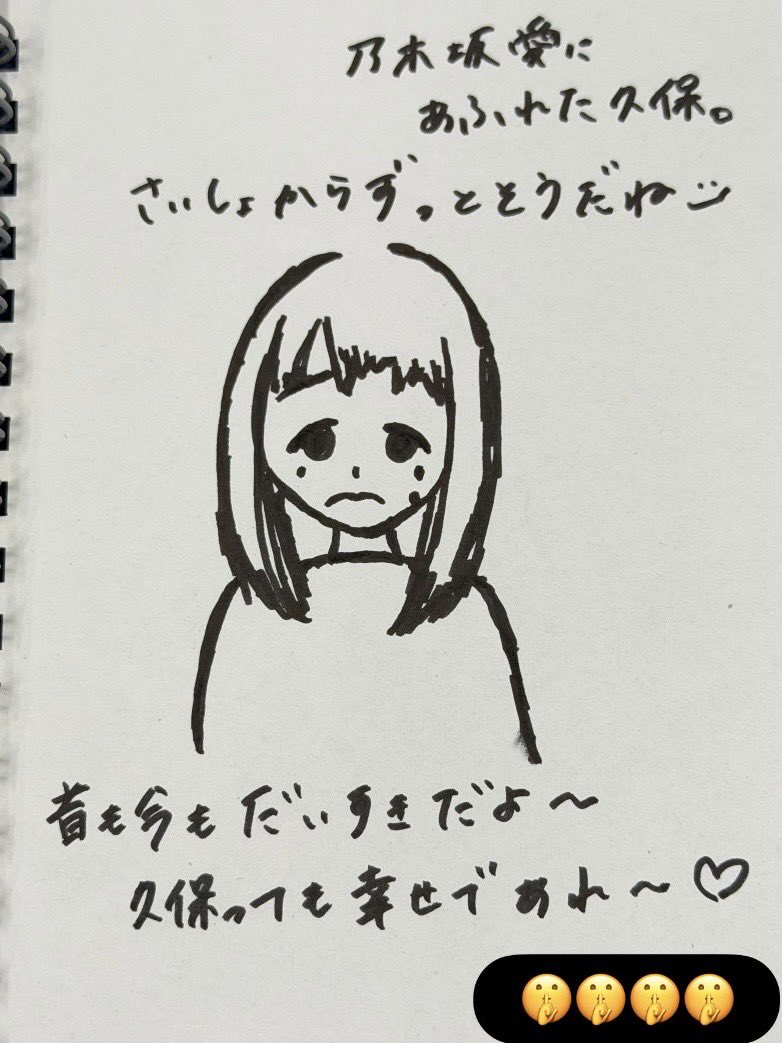 乃木坂愛に
あふれた久保。
さいしょからずっとそうだね
昔も今もだいすきだよ〜
久保っても幸せであれ〜♡